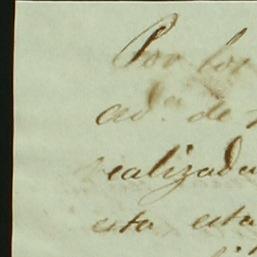 Por los
ad.ⁿ de
realizada
esta esta